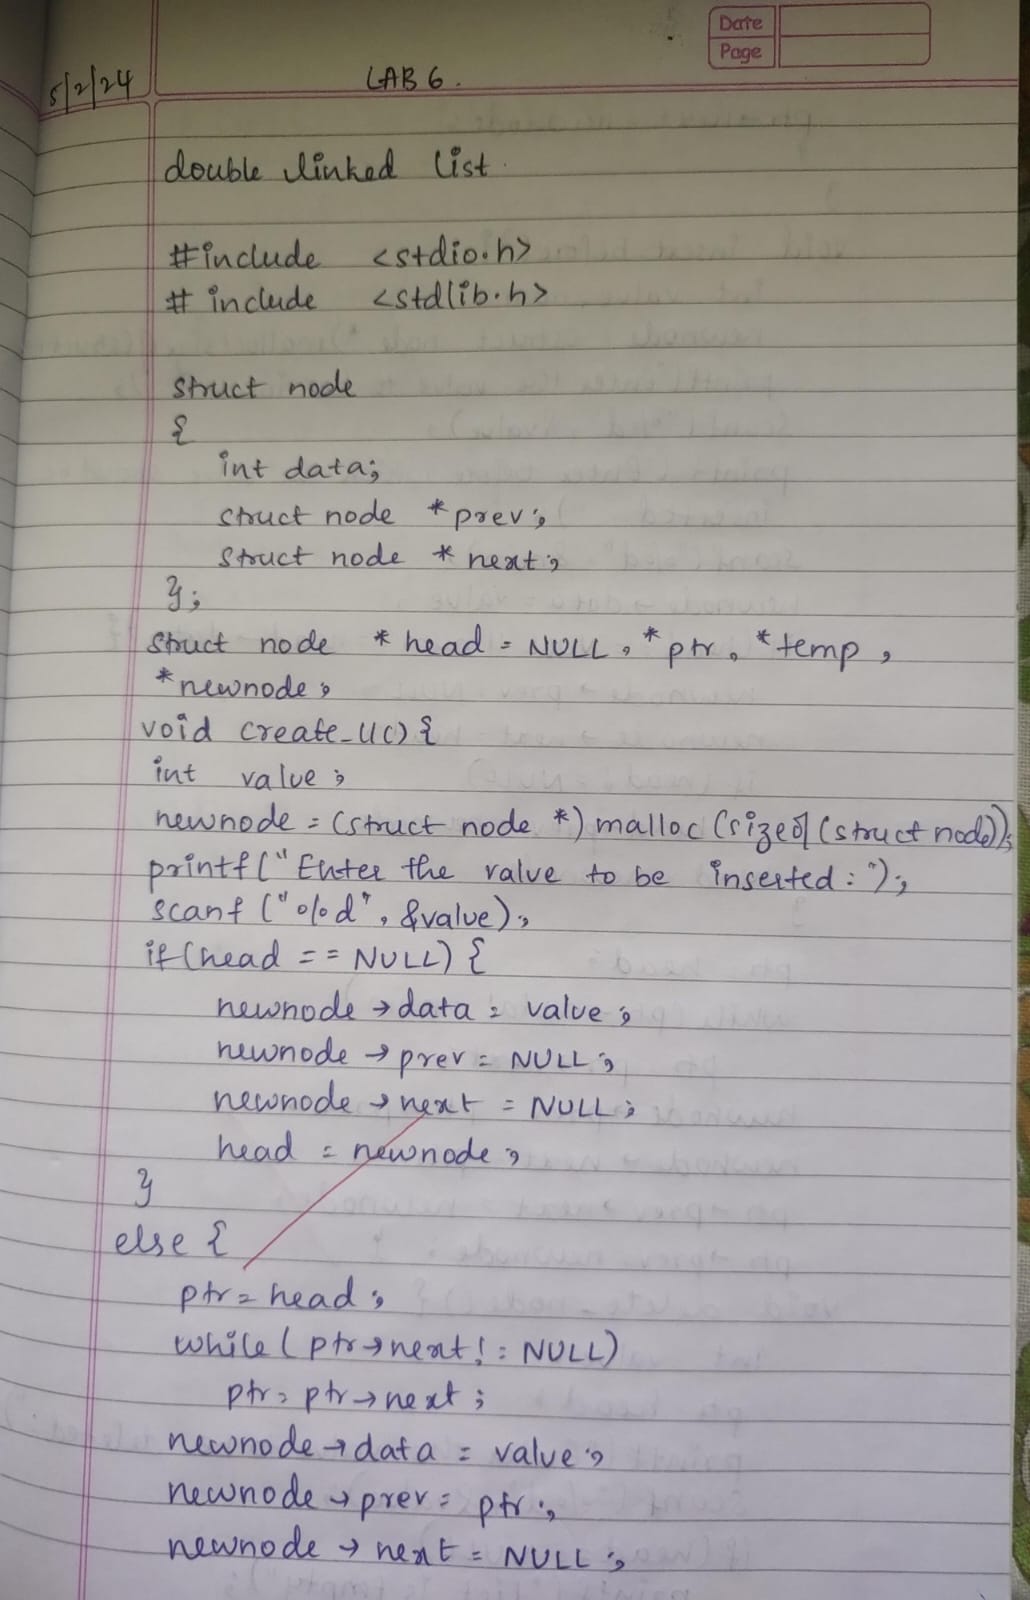 Date
Page
5/2/24
LAB 6.
double linked list.
#include <stdio.h>
# include <stdlib.h>
struct node
{
int data;
struct node *prev;
struct node * next;
};
struct node * head = NULL, *ptr, *temp,
*newnode;
void create_ll() {
int value;
newnode = (struct node *) malloc (sizeof (struct node));
printf(" Enter the value to be inserted: ");
scanf ("%d", &value);
if (head == NULL) {
newnode → data = value;
newnode → prev = NULL;
newnode → next = NULL;
head = newnode;
}
else {
ptr = head;
while ( ptr → next != NULL)
ptr = ptr → next;
newnode → data = value;
newnode → prev = ptr;
newnode → next = NULL;